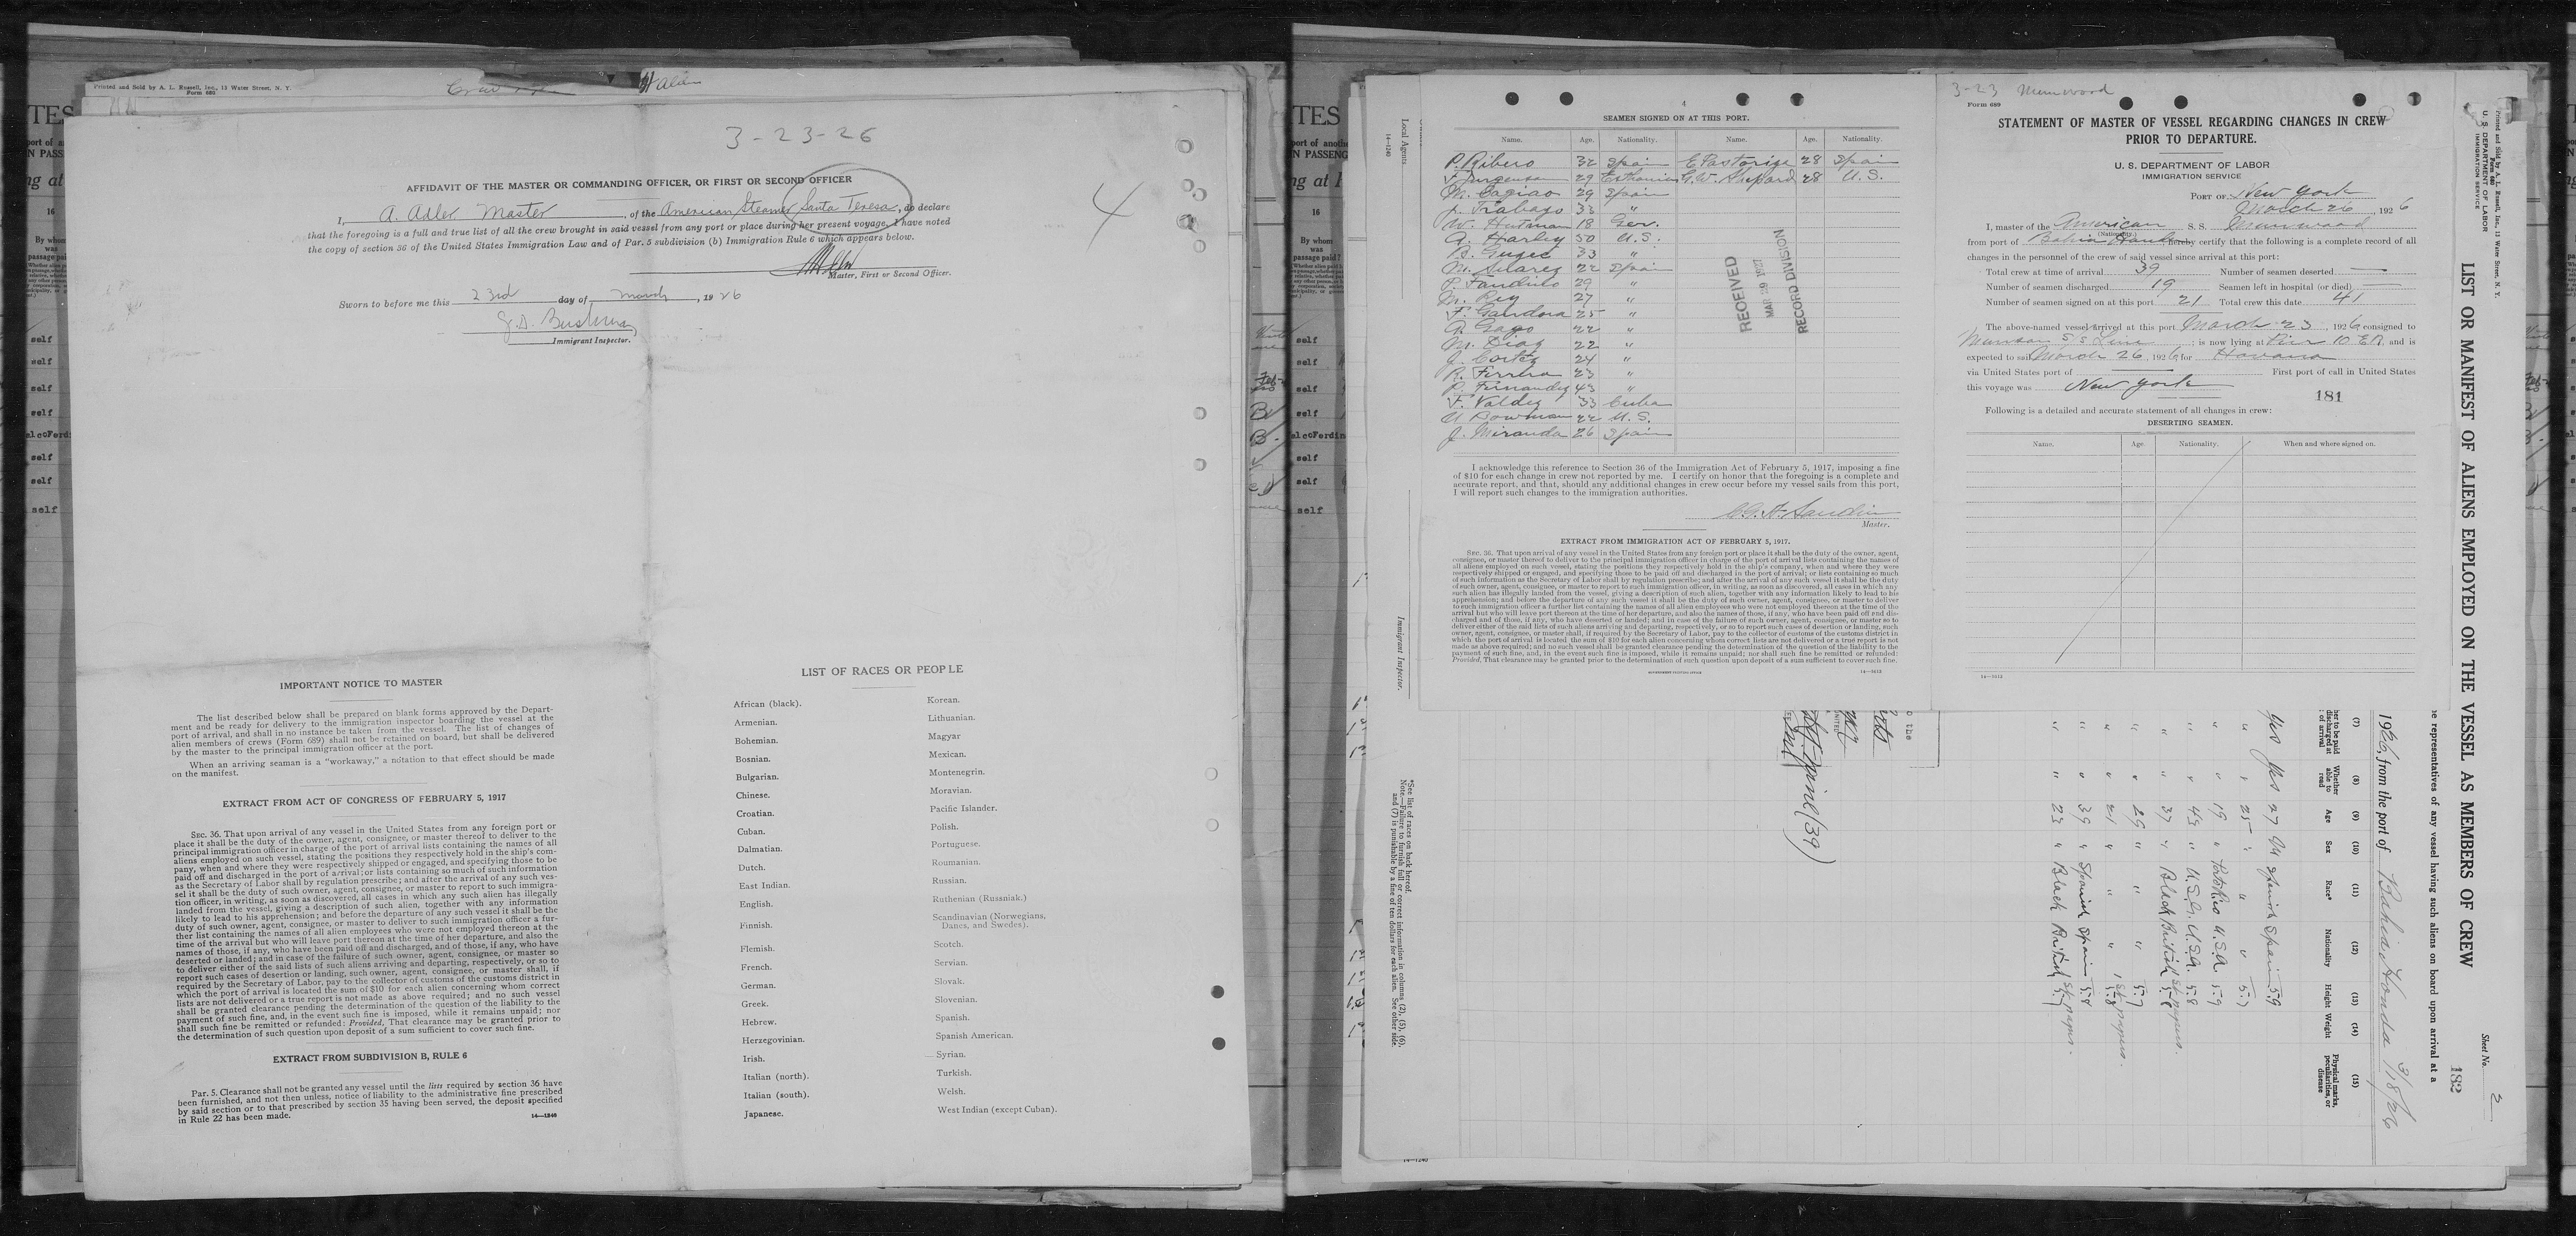 Printed and Sold by A. L. Russell, Inc., 13 Water Street, N. Y.
Form 680
3-23-26
4
AFFIDAVIT OF THE MASTER OR COMMANDING OFFICER, OR FIRST OR SECOND OFFICER
I, A. Adler Master, of the American Steamer Santa Teresa, do declare
that the foregoing is a full and true list of all the crew brought in said vessel from any port or place during her present voyage. I have noted
the copy of section 36 of the United States Immigration Law and of Par. 5 subdivision (b) Immigration Rule 6 which appears below.
Master, First or Second Officer.
Sworn to before me this 23rd day of March, 1926
Immigrant Inspector.
IMPORTANT NOTICE TO MASTER
The list described below shall be prepared on blank forms approved by the Depart-
ment and be ready for delivery to the immigration inspector boarding the vessel at the
port of arrival, and shall in no instance be taken from the vessel. The list of changes of
alien members of crews (Form 689) shall not be retained on board, but shall be delivered
by the master to the principal immigration officer at the port.
When an arriving seaman is a "workaway," a notation to that effect should be made
on the manifest.
EXTRACT FROM ACT OF CONGRESS OF FEBRUARY 5, 1917
SEC. 36. That upon arrival of any vessel in the United States from any foreign port or
place it shall be the duty of the owner, agent, consignee, or master thereof to deliver to the
principal immigration officer in charge of the port of arrival lists containing the names of all
aliens employed on such vessel, stating the positions they respectively hold in the ship's com-
pany, when and where they were respectively shipped or engaged, and specifying those to be
paid off and discharged in the port of arrival; or lists containing so much of such information
as the Secretary of Labor shall by regulation prescribe; and after the arrival of any such ves-
sel it shall be the duty of such owner, agent, consignee, or master to report to such immigra-
tion officer, in writing, as soon as discovered, all cases in which any such alien has illegally
landed from the vessel, giving a description of such alien, together with any information
likely to lead to his apprehension; and before the departure of any such vessel it shall be the
duty of such owner, agent, consignee, or master to deliver to such immigration officer a fur-
ther list containing the names of all alien employees who were not employed thereon at the
time of the arrival but who will leave port thereon at the time of her departure, and also the
names of those, if any, who have been paid off and discharged, and of those, if any, who have
deserted or landed; and in case of the failure of such owner, agent, consignee, or master so
to deliver either of the said lists of such aliens arriving and departing, respectively, or so to
report such cases of desertion or landing, such owner, agent, consignee, or master shall, if
required by the Secretary of Labor, pay to the collector of customs of the customs district in
which the port of arrival is located the sum of $10 for each alien concerning whom correct
lists are not delivered or a true report is not made as above required; and no such vessel
shall be granted clearance pending the determination of the question of the liability to the
payment of such fine, and, in the event such fine is imposed, while it remains unpaid; nor
shall such fine be remitted or refunded: Provided, That clearance may be granted prior to
the determination of such question upon deposit of a sum sufficient to cover such fine.
EXTRACT FROM SUBDIVISION B, RULE 6
Par. 5. Clearance shall not be granted any vessel until the lists required by section 36 have
been furnished, and not then unless, notice of liability to the administrative fine prescribed
by said section or to that prescribed by section 35 having been served, the deposit specified
in Rule 22 has been made.
14—1240
LIST OF RACES OR PEOPLE
African (black).
Armenian.
Bohemian.
Bosnian.
Bulgarian.
Chinese.
Croatian.
Cuban.
Dalmatian.
Dutch.
East Indian.
English.
Finnish.
Flemish.
French.
German.
Greek.
Hebrew.
Herzegovinian.
Irish.
Italian (north).
Italian (south).
Japanese.
Korean.
Lithuanian.
Magyar
Mexican.
Montenegrin.
Moravian.
Pacific Islander.
Polish.
Portuguese.
Roumanian.
Russian.
Ruthenian (Russniak.)
Scandinavian (Norwegians,
Danes, and Swedes).
Scotch.
Servian.
Slovak.
Slovenian.
Spanish.
Spanish American.
Syrian.
Turkish.
Welsh.
West Indian (except Cuban).
4
SEAMEN SIGNED ON AT THIS PORT.
Name. Age. Nationality. Name. Age. Nationality.
P. Ribero 32 Spain E. Pastoriza 28 Spain
F. Jurgenson 29 Esthonia G.W. Shepard 28 U.S.
M. Cagiao 29 Spain
J. Trabazo 33 "
W. Hutman 18 Ger.
A. Harley 50 U.S.
33 "
M. Suarez 22 Spain
P. Fandino 29 "
M. Rey 27 "
F. Gandora 25 "
A. Gago 22 "
M. Diaz 22 "
J. Cortez 24 "
R. Ferreira 23 "
P. Fernandez 43 "
F. Valdez 33 Cuba
Bowman 22 U.S.
J. Miranda 26 Spain
RECEIVED
MAR 9 1927
RECORD DIVISION
I acknowledge this reference to Section 36 of the Immigration Act of February 5, 1917, imposing a fine
of $10 for each change in crew not reported by me. I certify on honor that the foregoing is a complete and
accurate report, and that, should any additional changes in crew occur before my vessel sails from this port,
I will report such changes to the immigration authorities.
Master.
EXTRACT FROM IMMIGRATION ACT OF FEBRUARY 5, 1917.
SEC. 36. That upon arrival of any vessel in the United States from any foreign port or place it shall be the duty of the owner, agent,
consignee, or master thereof to deliver to the principal immigration officer in charge of the port of arrival lists containing the names of
all aliens employed on such vessel, stating the positions they respectively hold in the ship's company, when and where they were
respectively shipped or engaged, and specifying those to be paid off and discharged in the port of arrival; or lists containing so much
of such information as the Secretary of Labor shall by regulation prescribe; and after the arrival of any such vessel it shall be the duty
of such owner, agent, consignee, or master to report to such immigration officer, in writing, as soon as discovered, all cases in which any
such alien has illegally landed from the vessel, giving a description of such alien, together with any information likely to lead to his
apprehension; and before the departure of any such vessel it shall be the duty of such owner, agent, consignee, or master to deliver
to such immigration officer a further list containing the names of all alien employees who were not employed thereon at the time of the
arrival but who will leave port thereon at the time of her departure, and also the names of those, if any, who have been paid off and dis-
charged and of those, if any, who have deserted or landed; and in case of the failure of such owner, agent, consignee, or master so to
deliver either of the said lists of such aliens arriving and departing, respectively, or so to report such cases of desertion or landing, such
owner, agent, consignee, or master shall, if required by the Secretary of Labor, pay to the collector of customs of the customs district in
which the port of arrival is located the sum of $10 for each alien concerning whom correct lists are not delivered or a true report is not
made as above required; and no such vessel shall be granted clearance pending the determination of the question of the liability to the
payment of such fine, and, in the event such fine is imposed, while it remains unpaid; nor shall such fine be remitted or refunded:
Provided, That clearance may be granted prior to the determination of such question upon deposit of a sum sufficient to cover such fine.
GOVERNMENT PRINTING OFFICE
14—1613
3-23 Munwood
Form 689
STATEMENT OF MASTER OF VESSEL REGARDING CHANGES IN CREW
PRIOR TO DEPARTURE.
U. S. DEPARTMENT OF LABOR
IMMIGRATION SERVICE
PORT OF New York
March 26, 1926
I, master of the American S. S. Munwood
(Nationality.)
from port of Bahia Honda hereby certify that the following is a complete record of all
changes in the personnel of the crew of said vessel since arrival at this port:
Total crew at time of arrival 39 Number of seamen deserted —
Number of seamen discharged 19 Seamen left in hospital (or died) —
Number of seamen signed on at this port 21 Total crew this date 41
The above-named vessel arrived at this port March 23, 1926, consigned to
Munson S S Line; is now lying at Pier 10 E.R. and is
expected to sail March 26, 1926, for Havana
via United States port of — First port of call in United States
this voyage was New York
181
Following is a detailed and accurate statement of all changes in crew:
DESERTING SEAMEN.
Name. Age. Nationality. When and where signed on.
14—1613
Printed and Sold by A. L. Russell, Inc., 13 Water Street, N. Y.
Form 680
U. S. DEPARTMENT OF LABOR
IMMIGRATION SERVICE
LIST OR MANIFEST OF ALIENS EMPLOYED ON THE VESSEL AS MEMBERS OF CREW
Sheet No. 2
182
representatives of any vessel having such aliens on board upon arrival at a
1926, from the port of Bahia Honda 3/18/26
(7) (8) (9) (10) (11) (12) (13) (14) (15)
Whether able to read Age Sex Race* Nationality Height Weight Physical marks, peculiarities, or disease
Yes Yes 27 M Spanish Spain 5.9
" " 25 " " " 5.7
" " 19 " U.S.A. 5.9
" " 43 " U.S.A. U.S.A. 5.8
" " 37 " Black British 5.8
" " 29 " " " 5.7
" " 21 " " " 5.8
" " 39 " Spanish Spain 5.8
" " 23 " Black British 5.7
(39)
*See list of races on back hereof.
Note.—Failure to furnish full or correct information in columns (2), (5), (6),
and (7) is punishable by a fine of ten dollars for each alien. See other side.
Immigrant Inspector.
Local Agents
14—1240
self
self
self
self
self
self
self